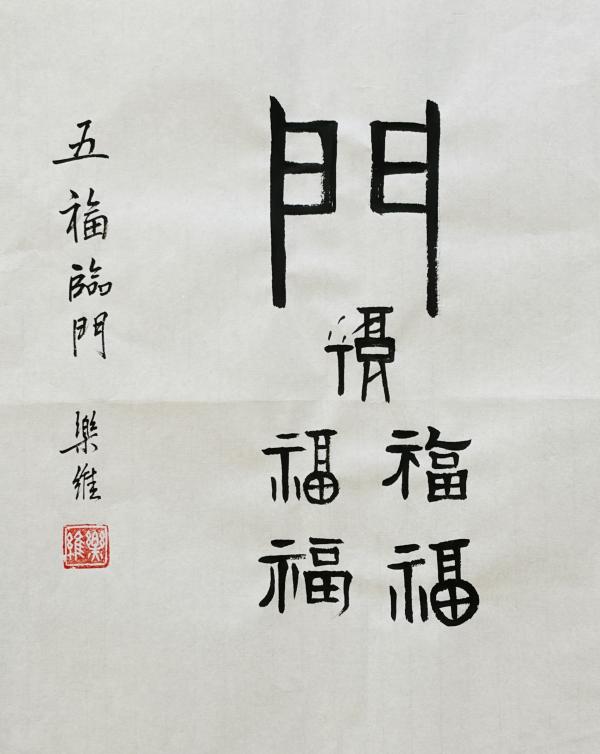 門
福
福 福
福 福
五福臨門 樂維
樂維